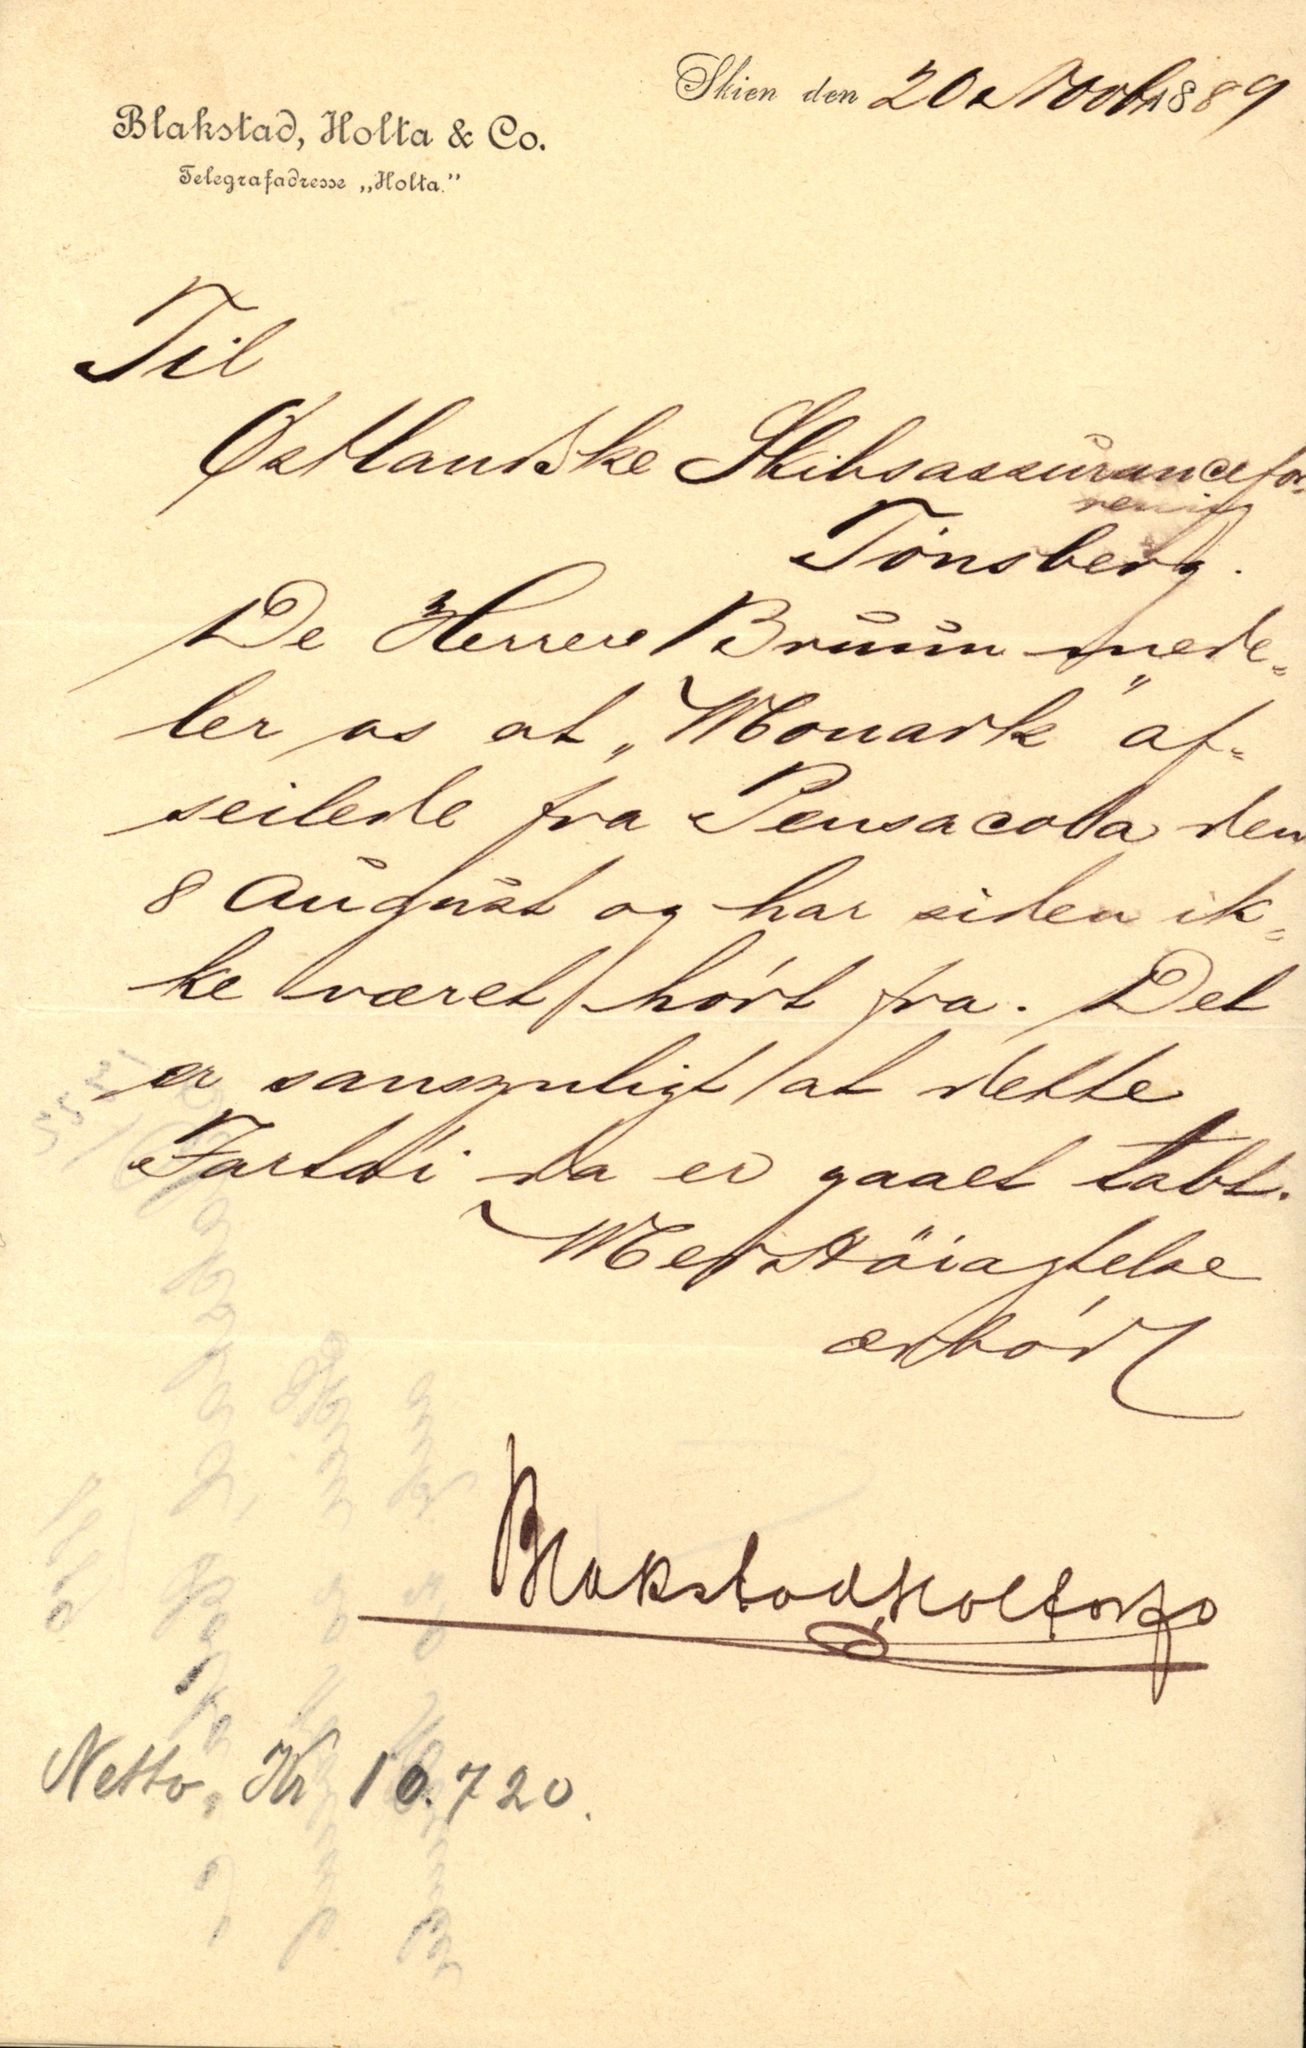 Skien den 20 Novb 1889
Blakstad, Holta & Co.
Telegrafadresse „Holta.”
Til
Østlandske Skibsassurancefor-
rening
Tönsberg.
De Herrer Bruun mede-
ler os at „Monark” af-
seilede fra Pensacola den
8 August og har siden ik-
ke været hört fra. Det
er sansynligt at dette
Fartöi da er gaaet tabt.
Med Höiagtelse
ærbödl
Blakstad Holta & Co
Netto, Kr 10.720.